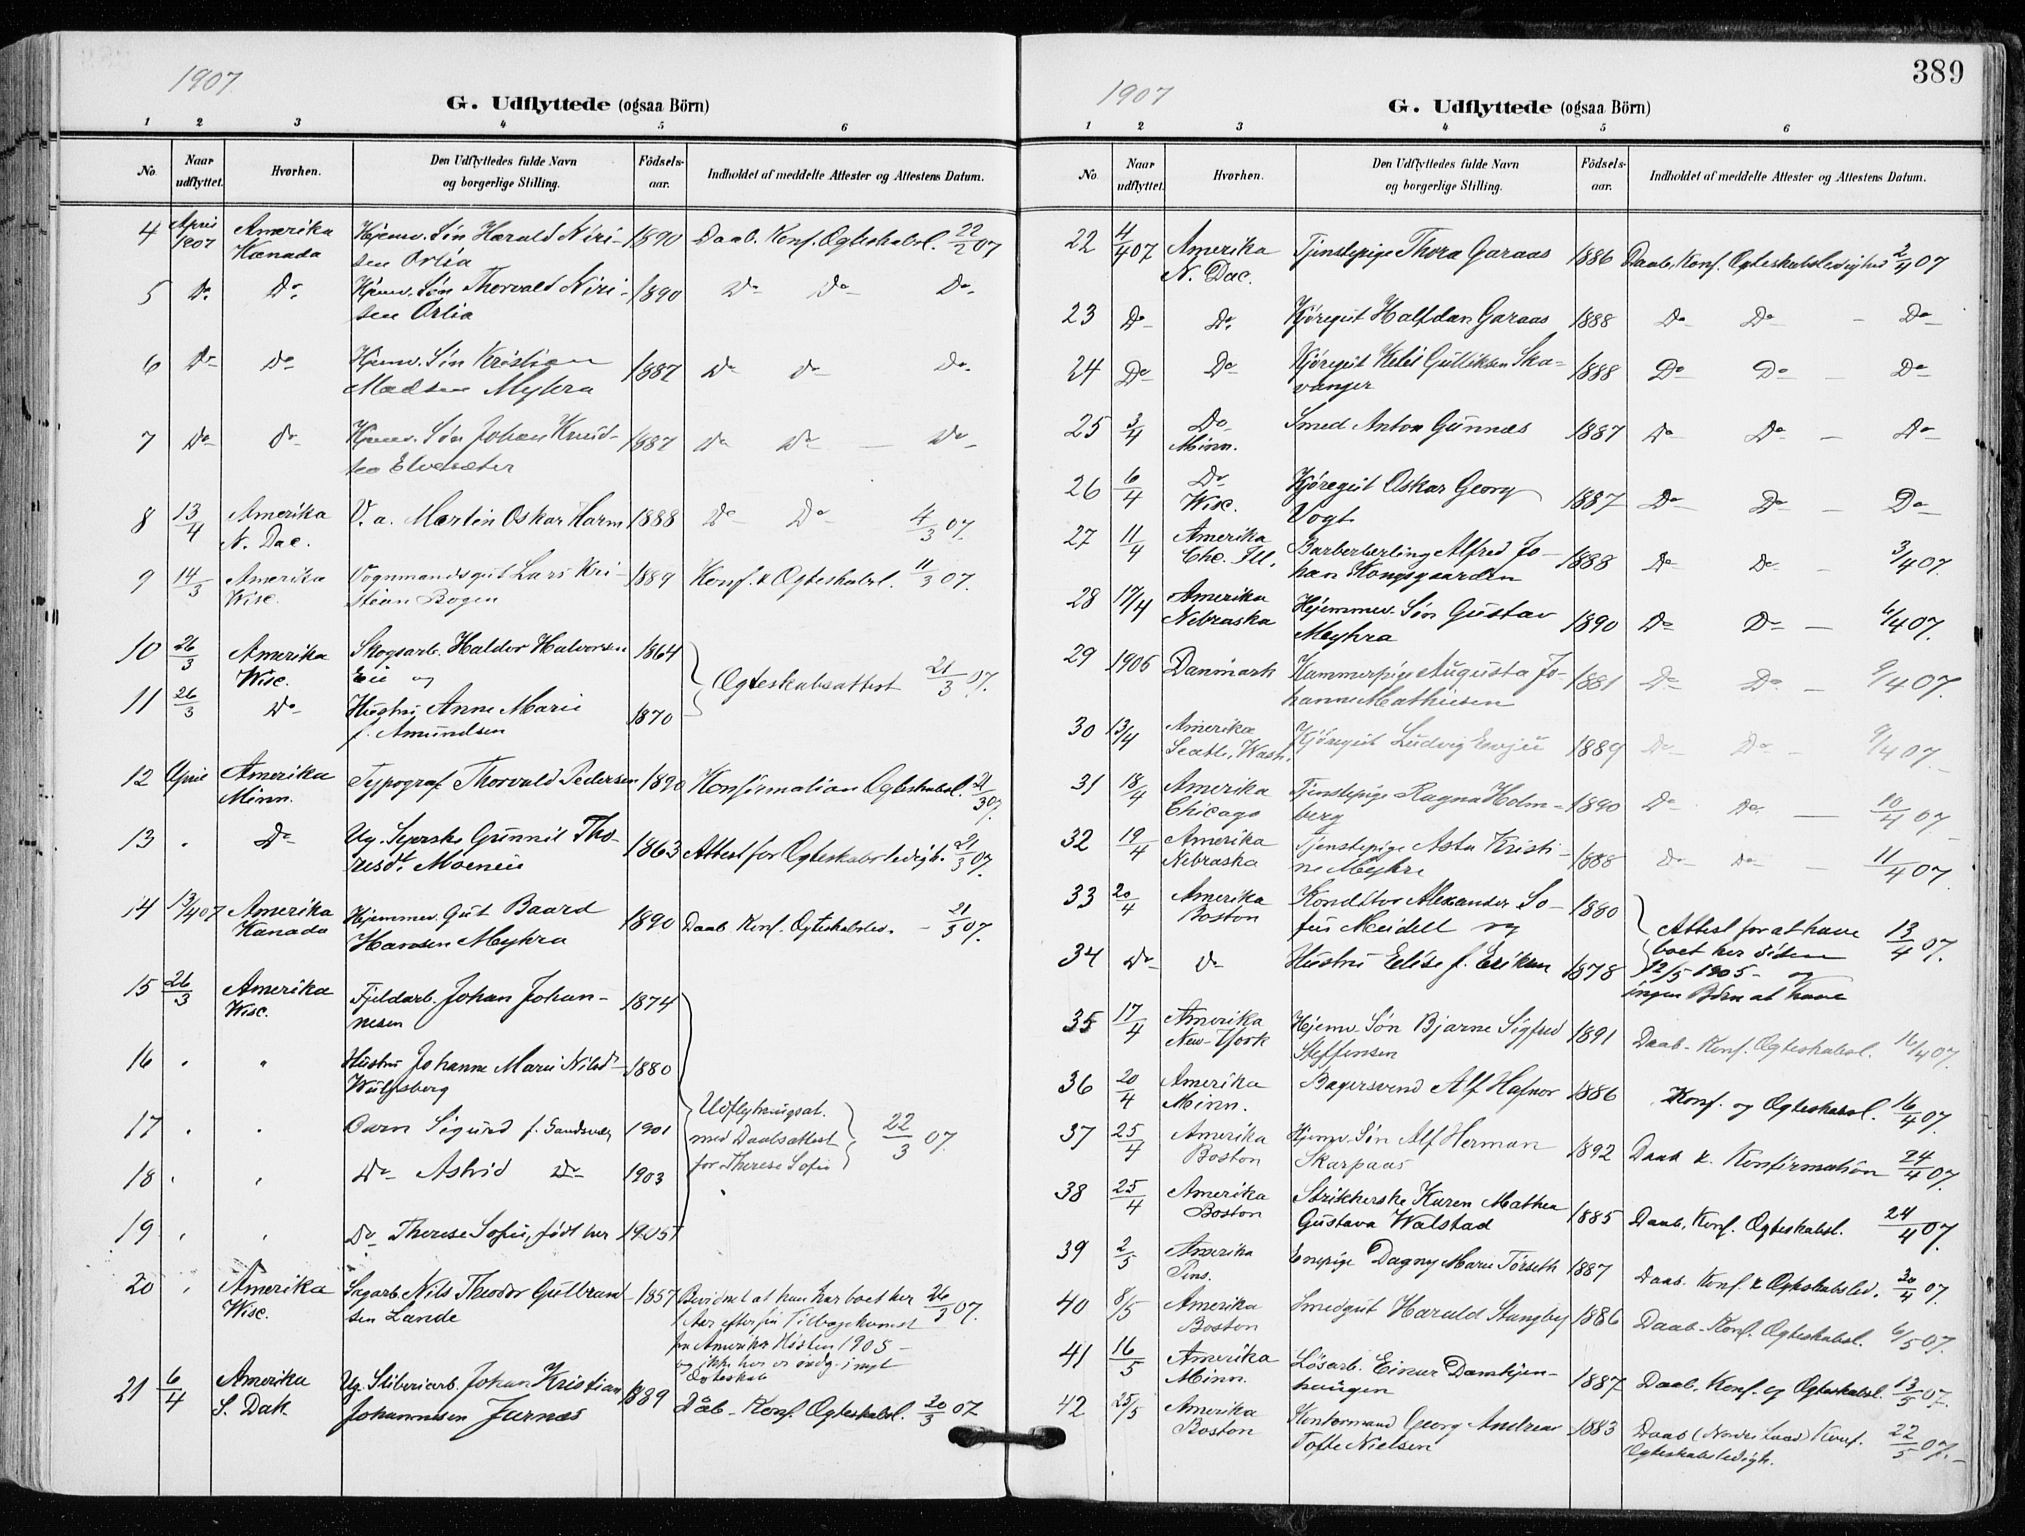 1907
G. Udflyttede (ogsaa Börn)
1 2 3 4 5 6
No. Naar udflyttet. Hvorhen. Den Udflyttedes fulde Navn og borgerlige Stilling. Födselsaar. Indholdet af meddelte Attester og Attestens Datum.
4 April 1907 Amerika Hjemv. Søn Harald Niri- 1890 Daab. Konf. Ogteskabsl. 22/2 07
Kanada sen Orlia
5 Do Do. Hjemv. Søn Thorvald Niri- 1890 Do Do Do
sen Orlia
6 Do Do Hjemv. Søn Kristian 1887 Do Do Do
Madsen Myhra
7 Do Do Hjemv. Søn Johan Knud- 1887 Do Do — Do
sen Elvesæter
8 13/4 Amerika V. a. Martin Oskar Harm 1888 Do Do 4/3 07.
N. Dac.
9 14/3 Amerika Vognmandsgut Lars Kri- 1889 Konf. & Ogteskabsl. 11/3 07.
Wisc. stian Bogen
10 26/3 Amerika Skogsarb. Haldor Halvorsen 1864 Ogteskabsattest 21/3 07.
Wisc. Eie og
11 26/3 Do Hustru Anne Marie 1870
f. Amundsen
12 April Amerika Typograf Thorvald Pedersen 1890 Konfirmation Ogteskabsl. 21/3 07.
Minn.
13 " Do Ug. Syerske Gunnil Tho- 1863 Attest for Ogteskabsledigh. 21/3 07.
resdt. Moeneie
14 13/4 07 Amerika Hjemmev. Gut Baard 1890 Daab Konf. Ogteskabsled. - 21/3 07.
Kanada Hansen Myhra
15 26/3 Amerika Fjeldarb. Johan Johan- 1874
Wisc. nesen
16 " " Hustru Johanne Marie Nilsdt 1880
Wulfsberg
17 " " Barn Sigurd f. Sandsvær 1901 Udflytningsat.
med Daabsattest 22/3 07.
18 " " Do Astrid Do 1903 for Therese Sofie
19 " " Do Therese Sofie, født her 1905
20 " Amerika Sagarb. Nils Theodor Gulbrand- 1857 Bevidnet at han har boet her 26/3 07.
Wisc. sen Lande 1 Aar efter sin Tilbagekomst
fra Amerika Høsten 1905 -
og ikke her er indg. i nyt
Ogteskab
21 6/4 Amerika Ug. Sliberiarb. Johan Kristian 1889 Dåb - Konf. Ogteskabsl. 20/3 07
S. Dak. Johannesen Jurnæs
389
1907
G. Udflyttede (ogsaa Börn)
1 2 3 4 5 6
No. Naar udflyttet. Hvorhen. Den Udflyttedes fulde Navn og borgerlige Stilling. Födselsaar. Indholdet af meddelte Attester og Attestens Datum.
22 4/4 07 Amerika Tjenstepige Thora Garaas 1886 Daab, Konf. Ogteskabsledighed 2/4 07
N. Dac.
23 Do Do. Kjøregut Halfdan Garaas 1888 Do Do - Do
24 Do Do Kjøregut Ketil Gulliksen Ska- 1888 Do Do — Do
vanger
25 3/4 Do Smed Anton Gunnæs 1887 Do Do — Do
Minn.
26 6/4 Do Kjøregut Oskar Georg 1887 Do Do — Do
Wisc. Vogt
27 11/4 Amerika Barberlærling Alfred Jo- 1888 Do Do — 3/4 07.
Chc. Ill. han Kongsgaarden
28 17/4 Amerika Hjemmev. Søn Gustav 1890 Do Do — 6/4 07.
Nebraska Myhra
29 1906 Danmark Kammerpige Augusta Jo- 1881 Do Do — 9/4 07.
hanne Mathiesen
30 13/4 Amerika Kjøregut Ludvig Enejie 1889 Do Do - 9/4 07.
Seatl. Wash.
31 18/4 Amerika Tjenstepige Ragna Holm- 1890 Do Do. — 10/4 07
Chicago berg
32 19/4 Amerika Tjenstepige Asta Kristi- 1888 Do Do — 11/4 07
Nebraska ne Myhre
33 20/4 Amerika Konditor Alexander So- 1880 Attest for at have 13/4 07.
Boston fus Meidell og boet her siden
34 Do Do Hustru Elise f. Eriksen 1878 12/5 1905 - og
ingen Børn at have
35 17/4 Amerika Hjemv. Søn Bjarne Sigfred 1891 Daab - Konf. Ogteskabsl. 16/4 07.
New-York Steffensen
36 20/4 Amerika Bagersvend Alf Hafnor 1886 Konf. og Ogteskabsl. 16/4 07.
Minn.
37 25/4 Amerika Hjemv. Søn Alf Herman 1892 Daab & Konfirmation 24/4 07.
Boston Skarpaas
38 25/4 Amerika Strikkerske Karen Mathea 1885 Daab, Konf. Ogteskabsl. 24/4 07.
Boston Gustava Walstad
39 2/5 Amerika Enepige Dagny Marie Torseth 1887 Daab. Konf. & Ogteskabsled. 30/4 07.
Pens.
40 8/5 Amerika Smedgut Harald Stangby 1886 Daab - Konf. Ogteskabsl. 6/5 07.
Boston
41 16/5 Amerika Løsarb. Einar Damhjen- 1887 Daab, Konf. og Ogteskabsl. 13/5 07.
Minn. haugen
42 25/5 Amerika Kontormand Georg Andreas 1883 Daab (Nordre Land) Konf. 22/5 07.-
Boston Tofte Nielsen Ogteskabsledigh.